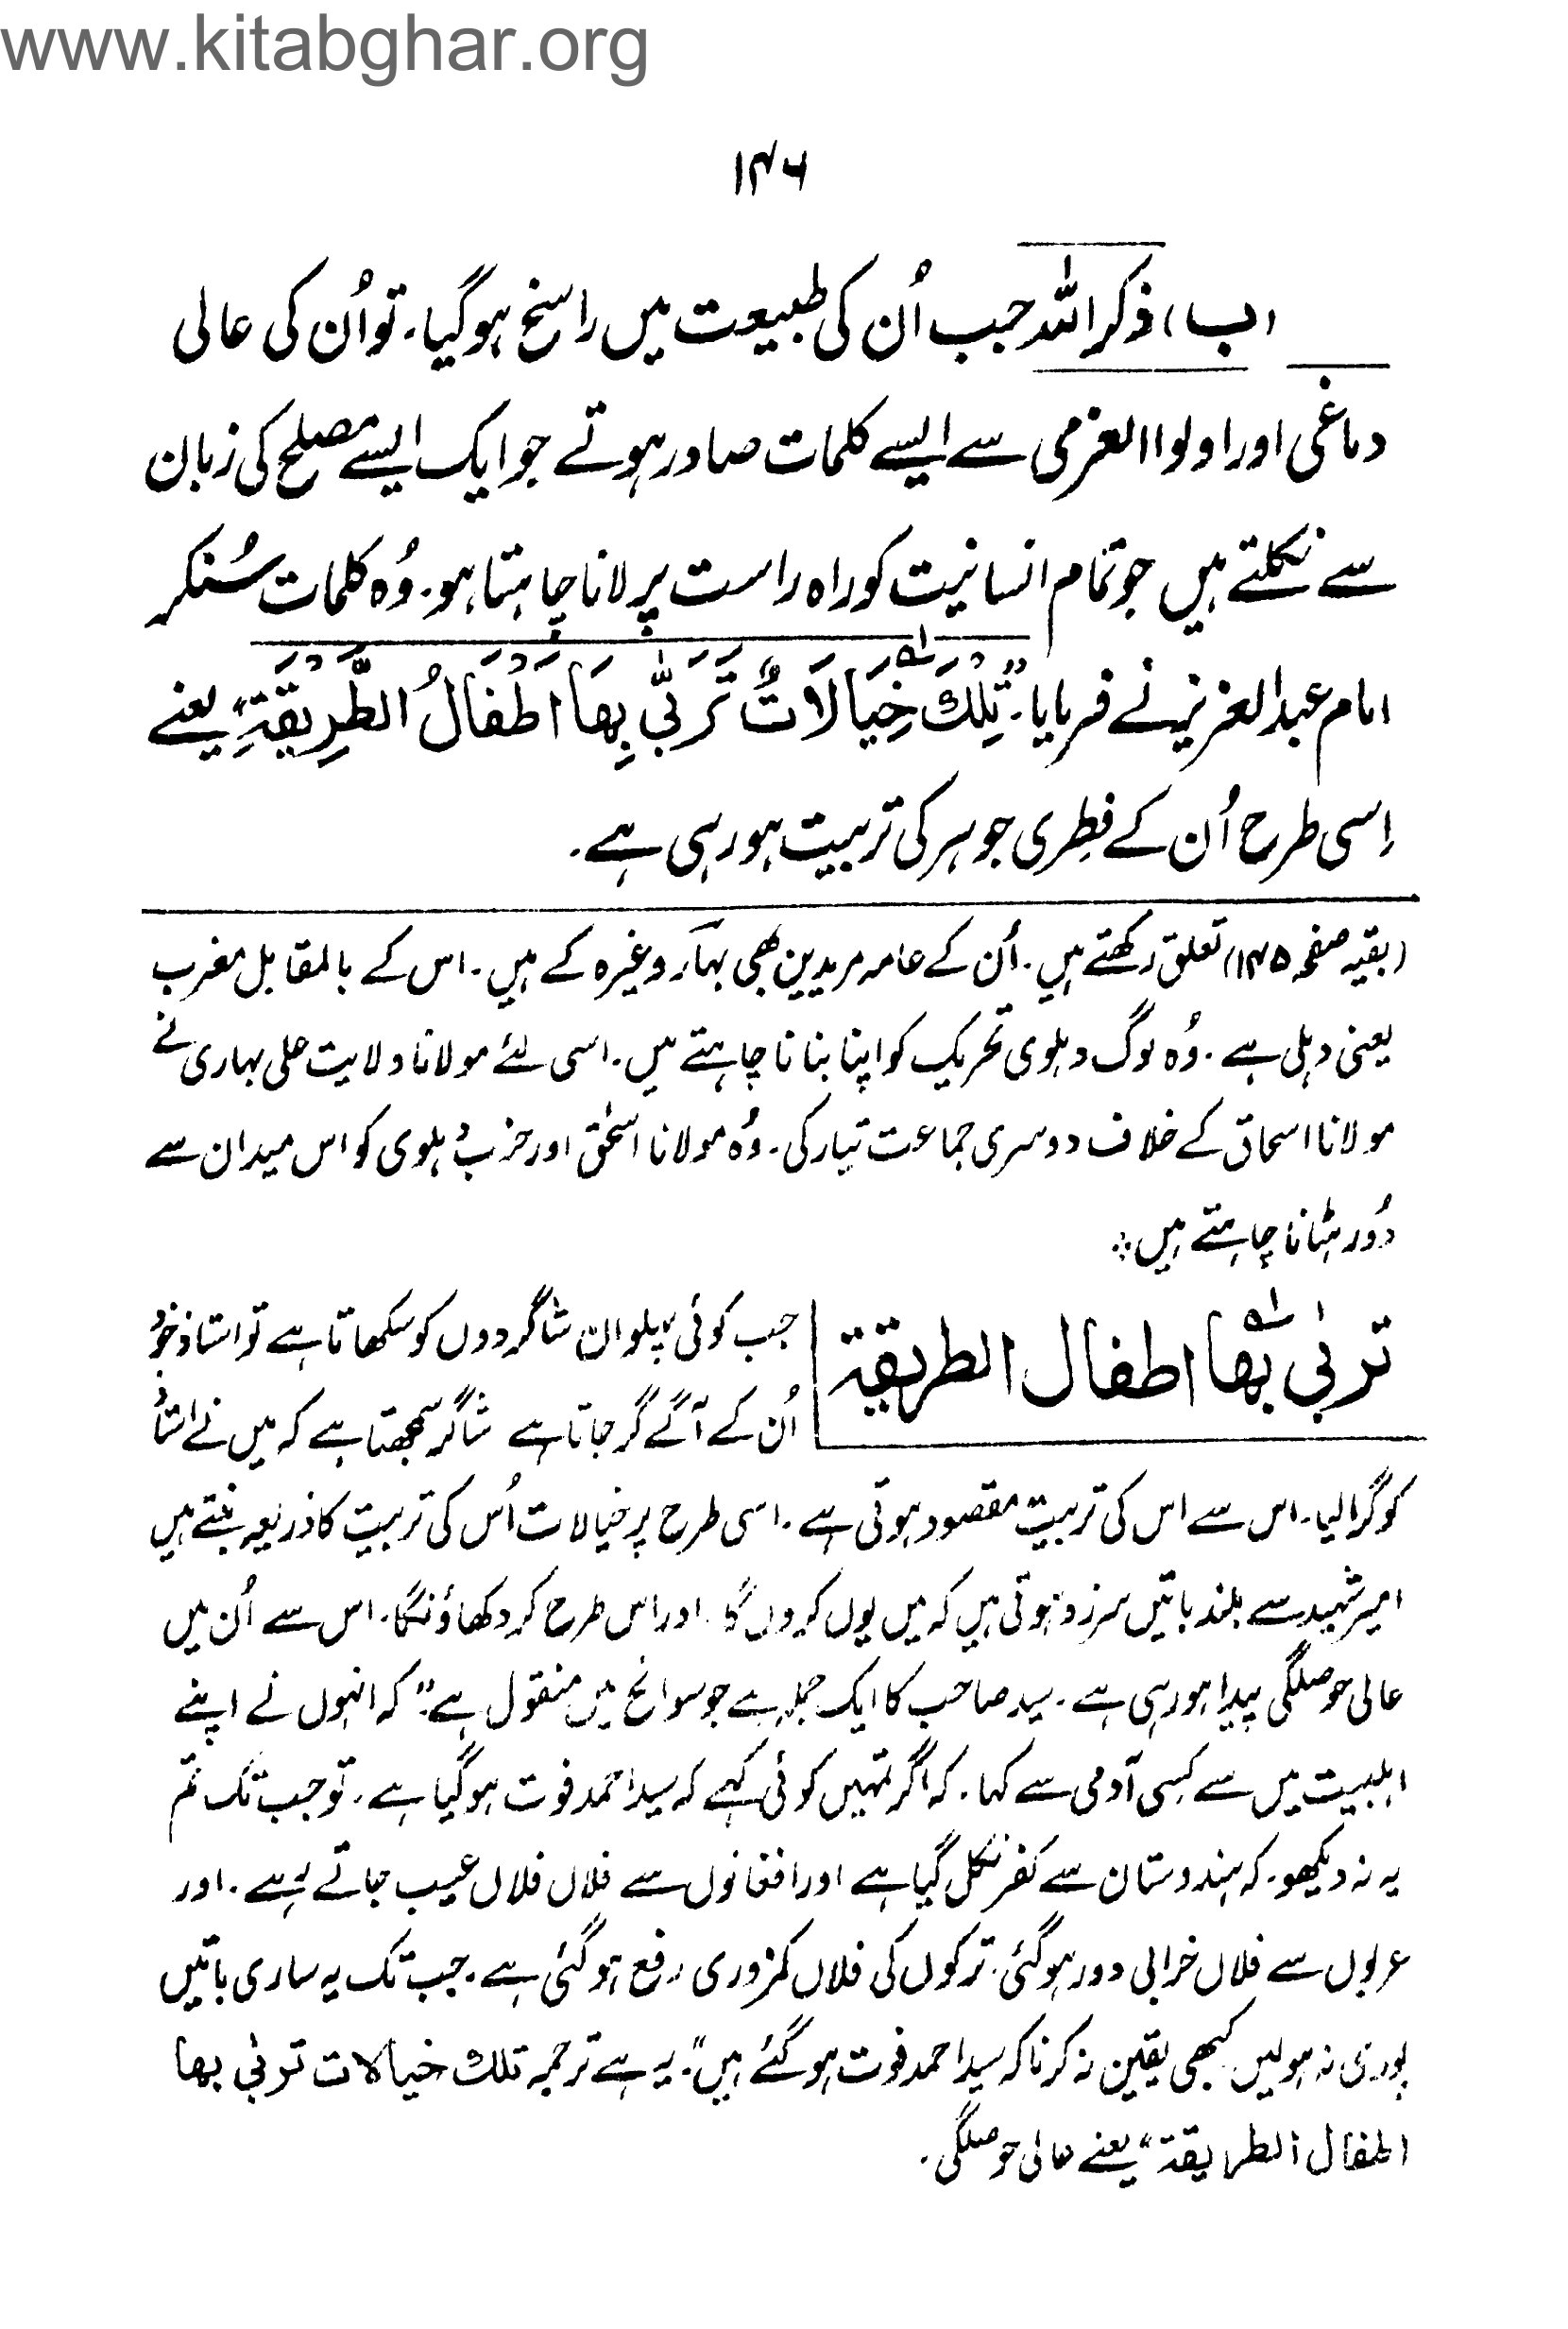 www.kitabghar.org
۱۴۶
(ب) ذکر اللہ جب اُن کی طبیعت میں راسخ ہوگیا۔ تو اُن کی عالی
دماغی اور اولوا العزمی سے ایسے کلمات صادر ہوتے جو ایک ایسے مصلح کی زبان
سے نکلتے ہیں جو تمام انسانیت کو راہ راست پر لانا چاہتا ہو۔ وُہ کلمات سُنکر
امام عبدالعزیز نے فرمایا۔ "تِلْكَ خِيَالَاتٌ تُرَبّٰى بِهَا اَطْفَالُ الطَّرِيْقَةِ" یعنے
اِسی طرح اُن کے فِطری جوہر کی تربیت ہو رہی ہے۔
(بقیہ صفحہ ۱۴۵) تعلق رکھتے ہیں۔ اُن کے عامہ مریدین بھی بہار وغیرہ کے ہیں۔ اس کے بالمقابل مغرب
یعنی دہلی ہے۔ وُہ لوگ دہلوی تحریک کو اپنا بنانا چاہتے ہیں۔ اسی لئے مولانا ولایت علی بہاری نے
مولانا اسحاق کے خلاف دوسری جماعت تیار کی۔ وُہ مولانا اسحٰق اور حزب دہلوی کو اس میدان سے
دُور ہٹانا چاہتے ہیں۔
تربیٰ بھا اطفال الطریقۃ
جب کوئی پہلوان شاگردوں کو سکھاتا ہے تو استاذ خود
اُن کے آگے گر جاتا ہے شاگرد سمجھتا ہے کہ میں نے استاذ
کو گرا لیا۔ اس سے اس کی تربیت مقصود ہوتی ہے۔ اسی طرح پر خیالات اُس کی تربیت کا ذریعہ بنتے ہیں
امیر شہید سے بلند باتیں سرزد ہوتی ہیں کہ میں یوں کروں گا۔ اور اس طرح کر دکھاؤنگا۔ اس سے اُن میں
عالی حوصلگی پیدا ہو رہی ہے۔ سید صاحب کا ایک جملہ ہے جو سوانح میں منقول ہے" کہ انہوں نے اپنے
اہلبیت میں سے کِسی آدمی سے کہا۔ کہ اگر تمہیں کوئی کہے کہ سید احمد فوت ہوگیا ہے۔ تو جب تک تم
یہ نہ دیکھو۔ کہ ہندوستان سے کفر نکل گیا ہے اور افغانوں سے فلاں فلاں عیب جاتے رہے۔ اور
عربوں سے فلاں خرابی دور ہوگئی۔ ترکوں کی فلاں کمزوری رفع ہوگئی ہے۔ جب تک یہ ساری باتیں
پوری نہ ہولیں کبھی یقین نہ کرنا کہ سید احمد فوت ہوگئے ہیں"۔ یہ ہے ترجمہ تلك خیالات تربیٰ بھا
اطفال الطریقۃ" یعنے عالی حوصلگی۔